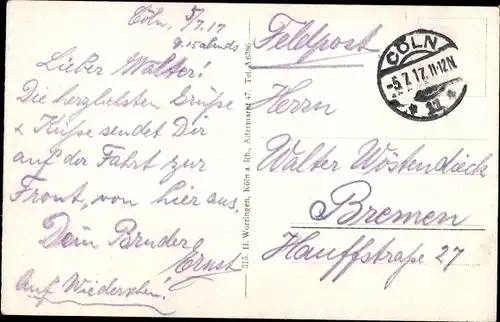 Cöln, 5/7.17
9.15 abends
Lieber Walter!
Die herzlichsten Grüße
& Küsse sendet Dir
auf der Fahrt zur
Front, von hier aus,
Dein Bruder
Ernst
Auf Wiedersehn!
315 H. Worringen, Köln a. Rh., Altermarkt 47. Tel. A 6386.
Feldpost
CÖLN
-5.7.17. 11-12N
Herrn
Walter Wöstendieck
Bremen
Hauffstraße 27